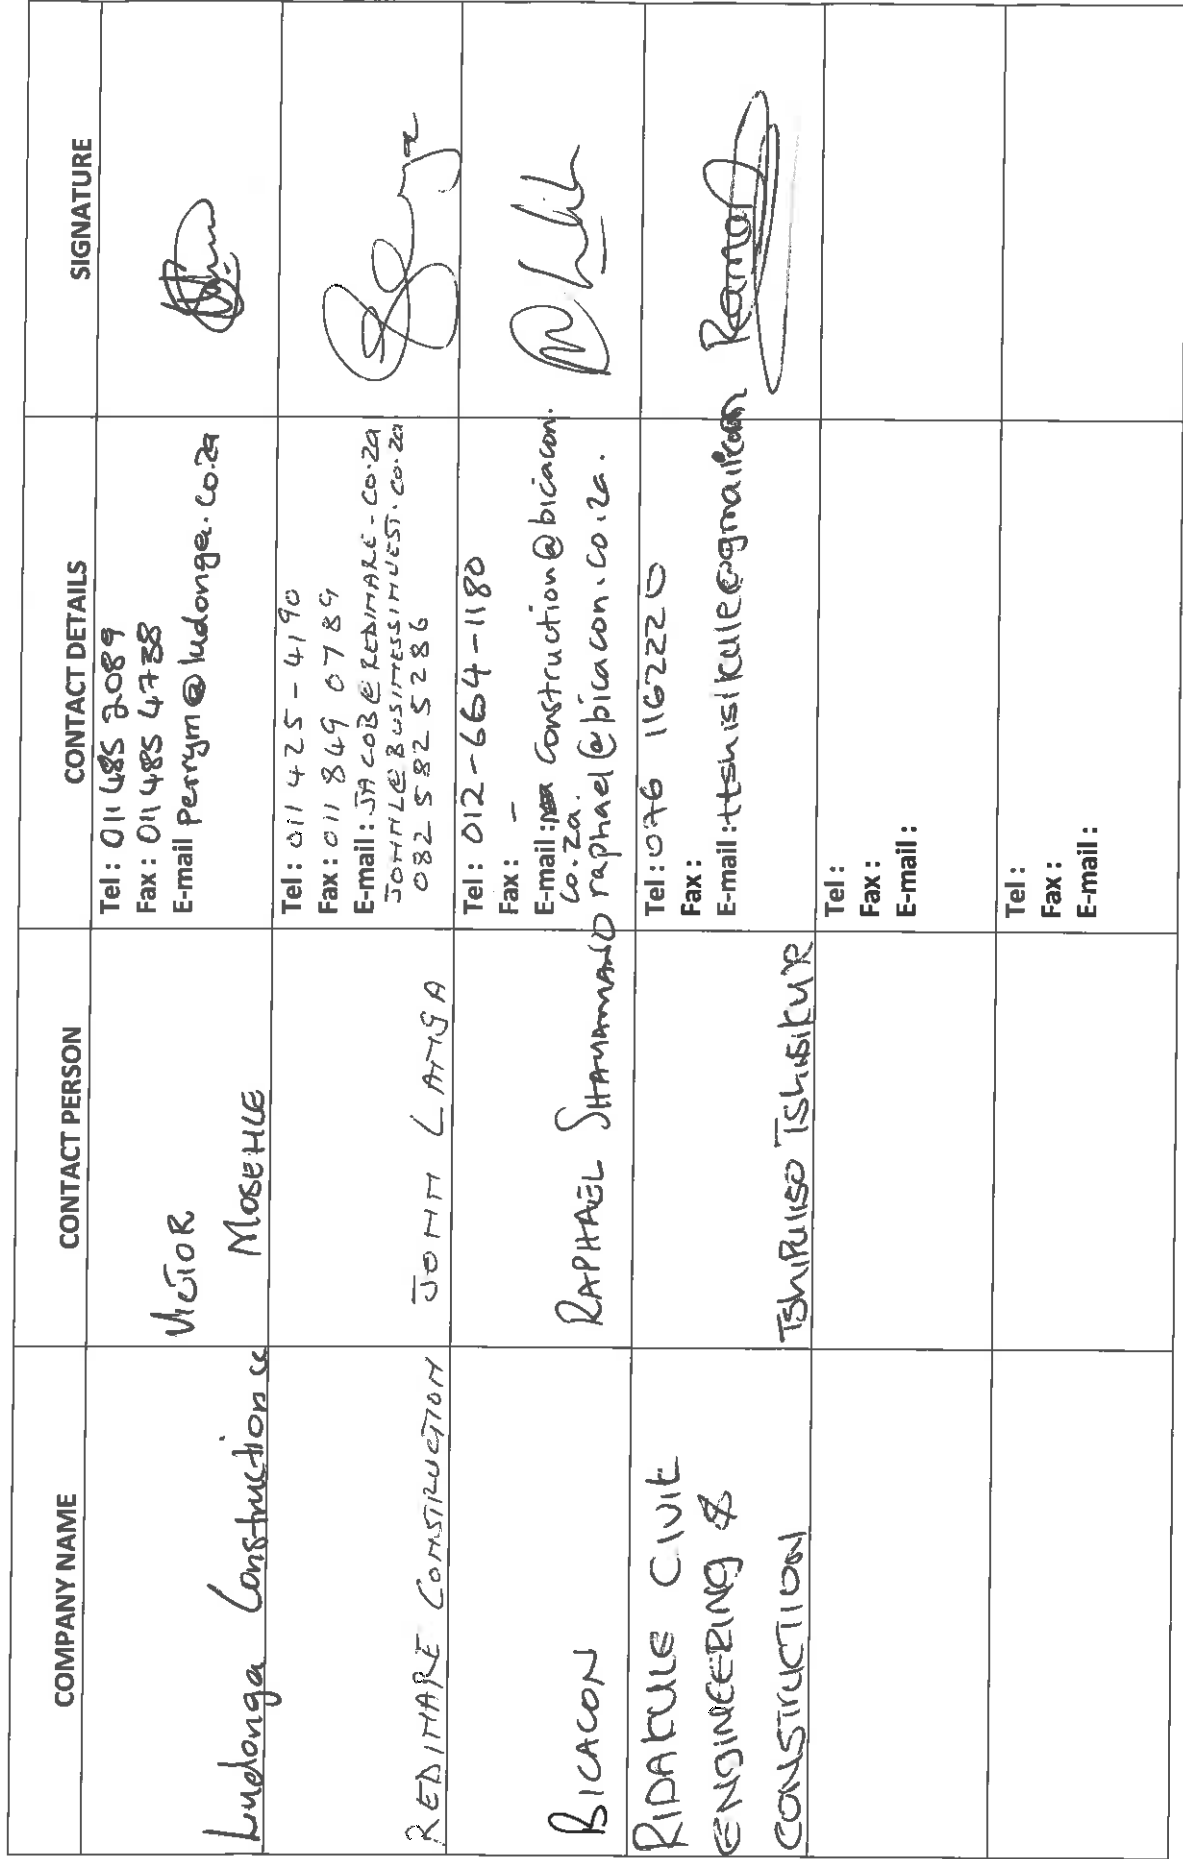 COMPANY NAME
CONTACT PERSON
CONTACT DETAILS
SIGNATURE
Ludonga Construction cc
VICTOR
MOSEHLE
Tel : 011 485 2089
Fax : 011 485 4738
E-mail perrym@ludonga.co.za
REDIMARE CONSTRUCTION
JOHN LANGA
Tel : 011 425 - 4190
Fax : 011 849 0789
E-mail : JACOB@REDIMARE.CO.ZA
JOHNL@BUSINESSINVEST.CO.ZA
082 582 5286
BICACON
RAPHAEL SHAMMANO
Tel : 012-664-1180
Fax : -
E-mail : Construction@bicacon.
co.za.
raphael@bicacon.co.za.
RIDAKULE CIVIL
ENGINEERING &
CONSTRUCTION
Tel : 076 1162220
Fax :
E-mail : ttshisikule@gmail.com
Tel :
Fax :
E-mail :
Tel :
Fax :
E-mail :